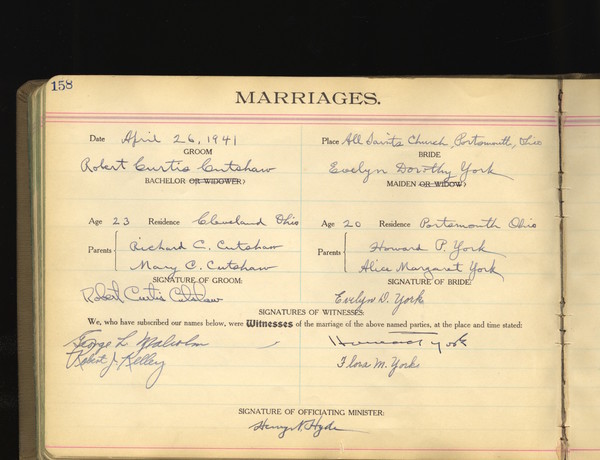 158
MARRIAGES.
Date April 26, 1941 Place All Saints Church, Portsmouth, Ohio
GROOM BRIDE
Robert Curtis Cutshaw Evelyn Dorothy York
BACHELOR OR WIDOWER) MAIDEN OR WIDOW)
Age 23 Residence Cleveland Ohio Age 20 Residence Portsmouth Ohio
Parents Richard C. Cutshaw Parents Howard P. York
Mary C. Cutshaw Alice Margaret York
SIGNATURE OF GROOM: SIGNATURE OF BRIDE:
Robert Curtis Cutshaw Evelyn D. York
SIGNATURES OF WITNESSES:
We, who have subscribed our names below, were Witnesses of the marriage of the above named parties, at the place and time stated:
George L. Malcolm Howard York
Robert J. Kelley Flora M. York
SIGNATURE OF OFFICIATING MINISTER:
Henry N. Hyde